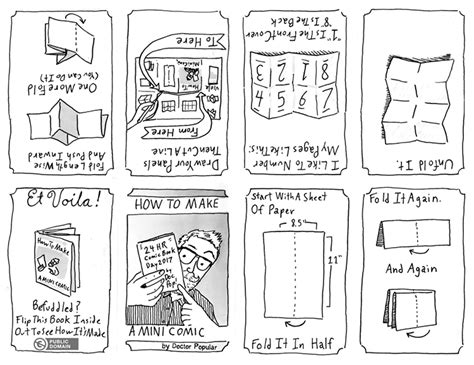 HOW TO MAKE
24 HR
Comic Book
Day 2017
by
Doc
Pop
A MINI COMIC
by Doctor Popular
Start With A Sheet
Of Paper
8.5"
11"
Fold It In Half
Fold It Again.
And Again
Unfold It.
I Like To Number
My Pages Like This:
7 6 5 4
8 1 2 3
"1" Is The Front Cover
"8" Is The Back
Draw Your Panels
Then Cut A Line
From Here
To Here
Fold Length Wise
And Push Inward
One More Fold
(You Can Do It)
Et Voila!
How To Make
A MINI COMIC
Befuddled?
Flip This Book Inside
Out To See How It's Made
PUBLIC
DOMAIN